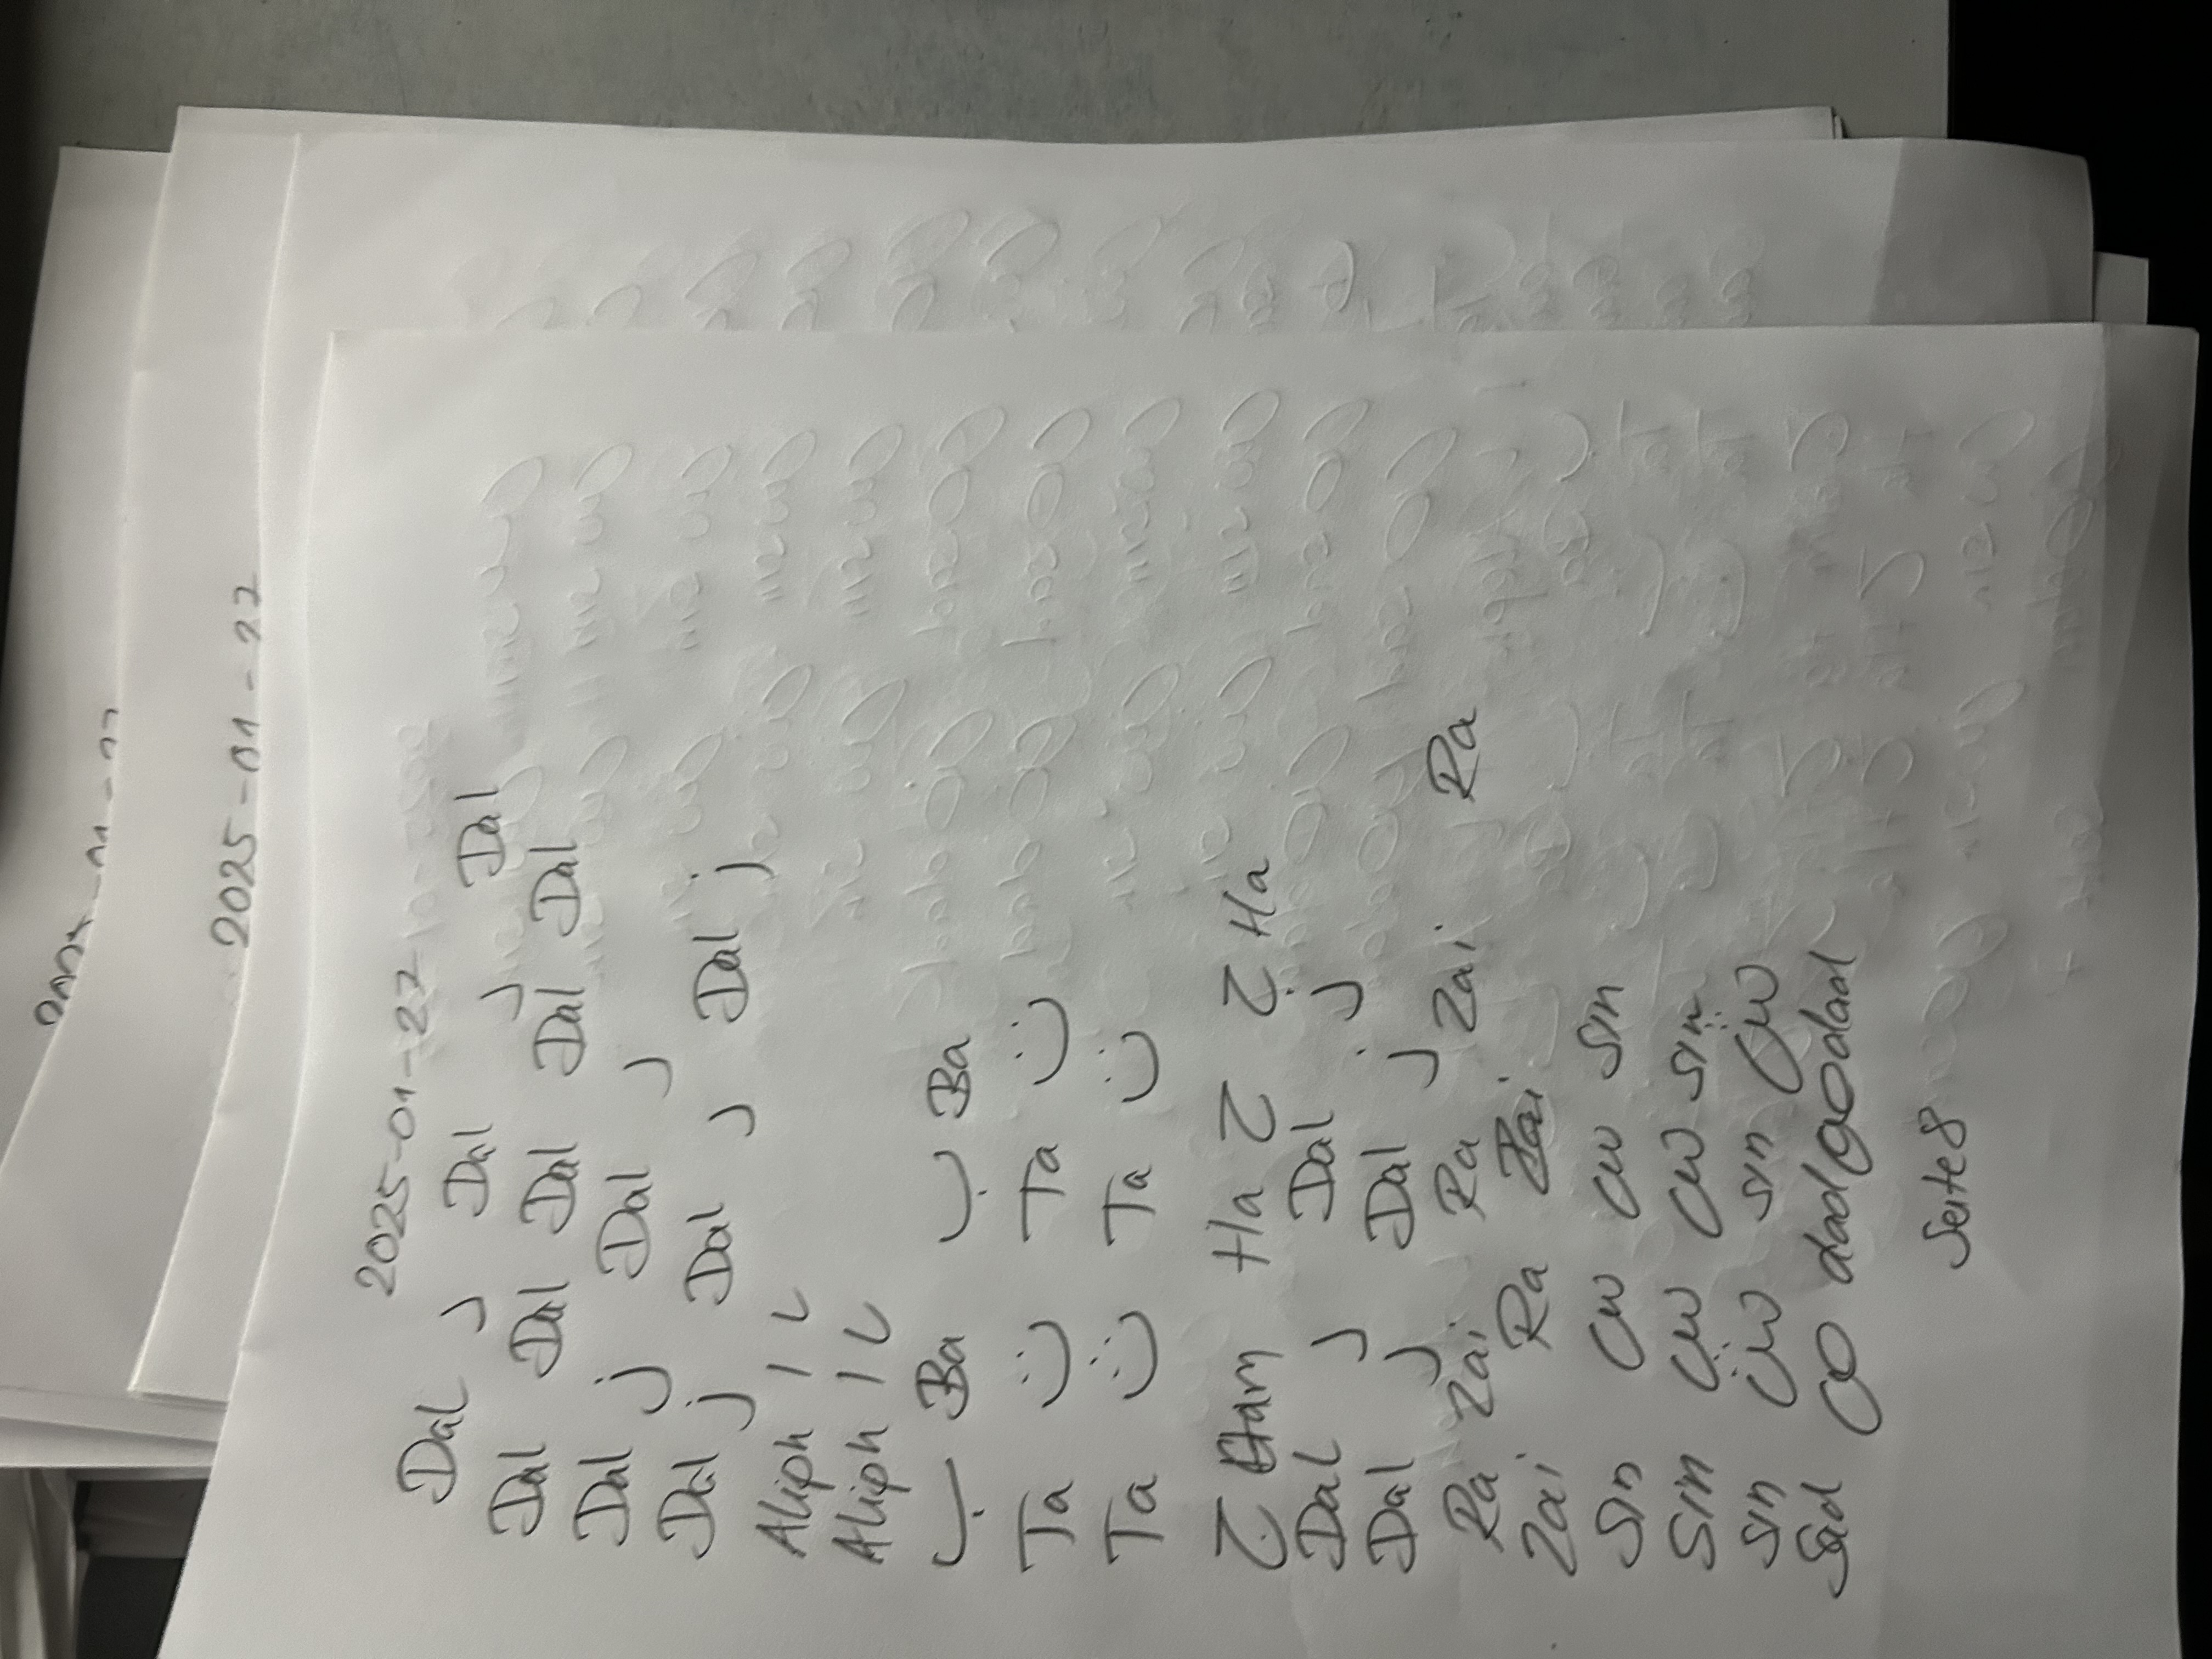 2025-01-27
2025-01-27
Dal د Dal Dal
Dal Dal Dal Dal Dal
Dal ذ Dal د
Dal ذ Dal د Dal ذ
Aliph ا ل
Aliph ا ل
ب Ba ب Ba
Ta ت Ta ت
Ta ت Ta ت
ح Ha ح خ Ha
Dal د Dal د
Dal د Dal ذ
Ra Zai Ra Zai Ra
Zai Ra Zai
Sin س س Sin
Sin س س Sin
Sin س Sin س
Sad ص dad
Seite 8